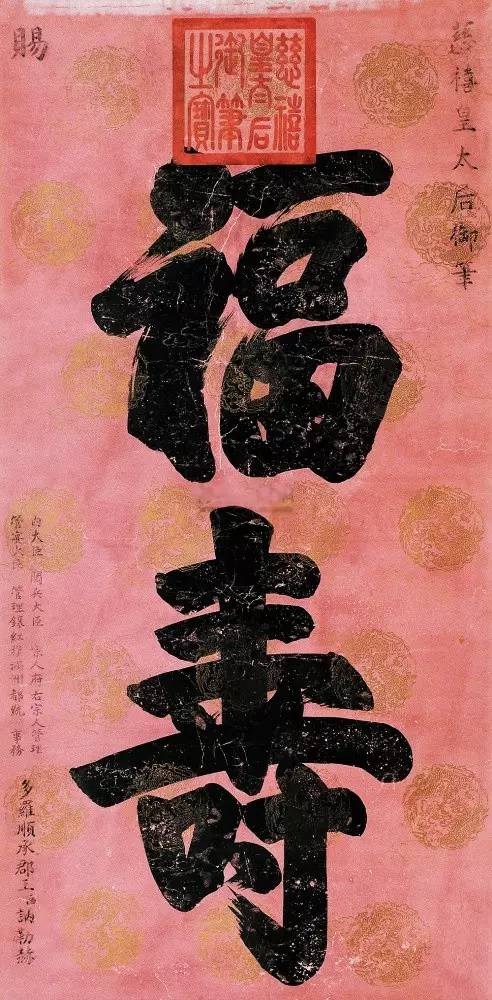 慈禧皇太后御筆
慈禧
皇太后
御筆
之寶
福
壽
賜
內大臣 閱兵大臣 宗人府右宗人管理
管宴大臣 管理鑲紅旗滿州都統 事務
多羅順承郡王臣訥勒赫